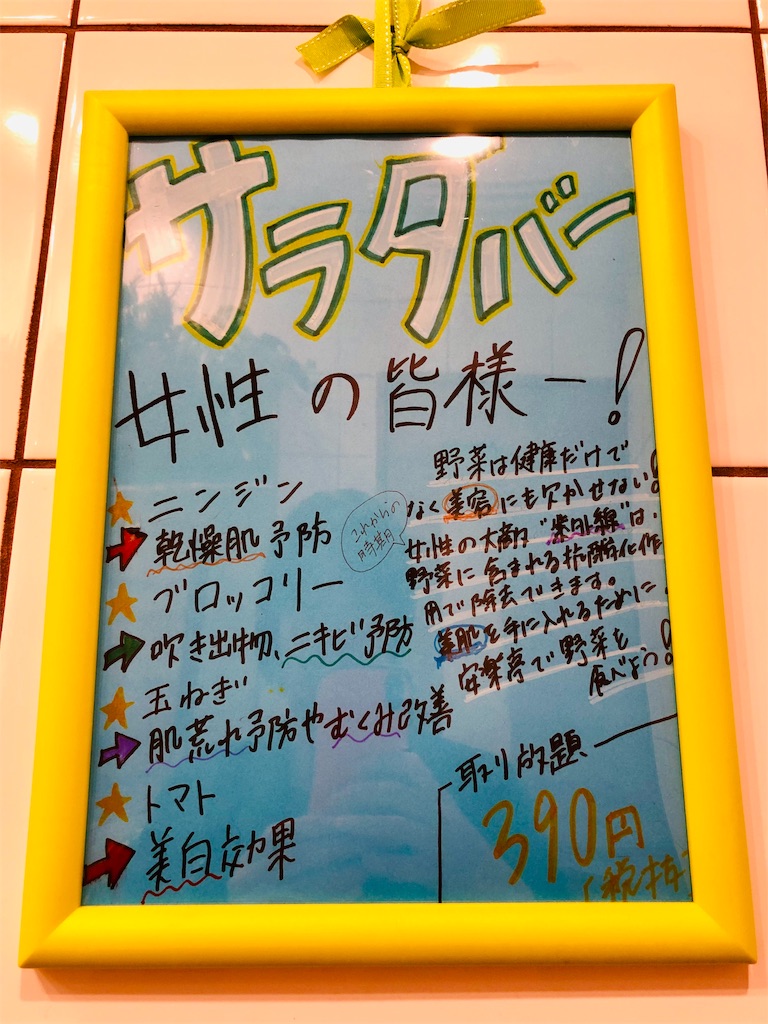 サラダバー
女性の皆様ー!
ニンジン
乾燥肌予防
ブロッコリー
吹き出物、ニキビ予防
玉ねぎ
肌荒れ予防やむくみ改善
トマト
美白効果
これからの
時期
野菜は健康だけで
なく美容にも欠かせない!
女性の大敵"紫外線"は、
野菜に含まれる抗酸化作
用で除去できます。
美肌を手に入れるために、
安楽亭で野菜を、
食べよう!
取り放題
390円
(税抜